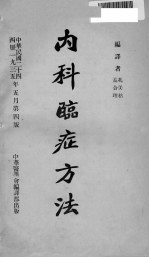 編譯者
內科臨症方法
中華民國二十四
西曆一九三五
年五月第四版
中華醫學會編譯部出版